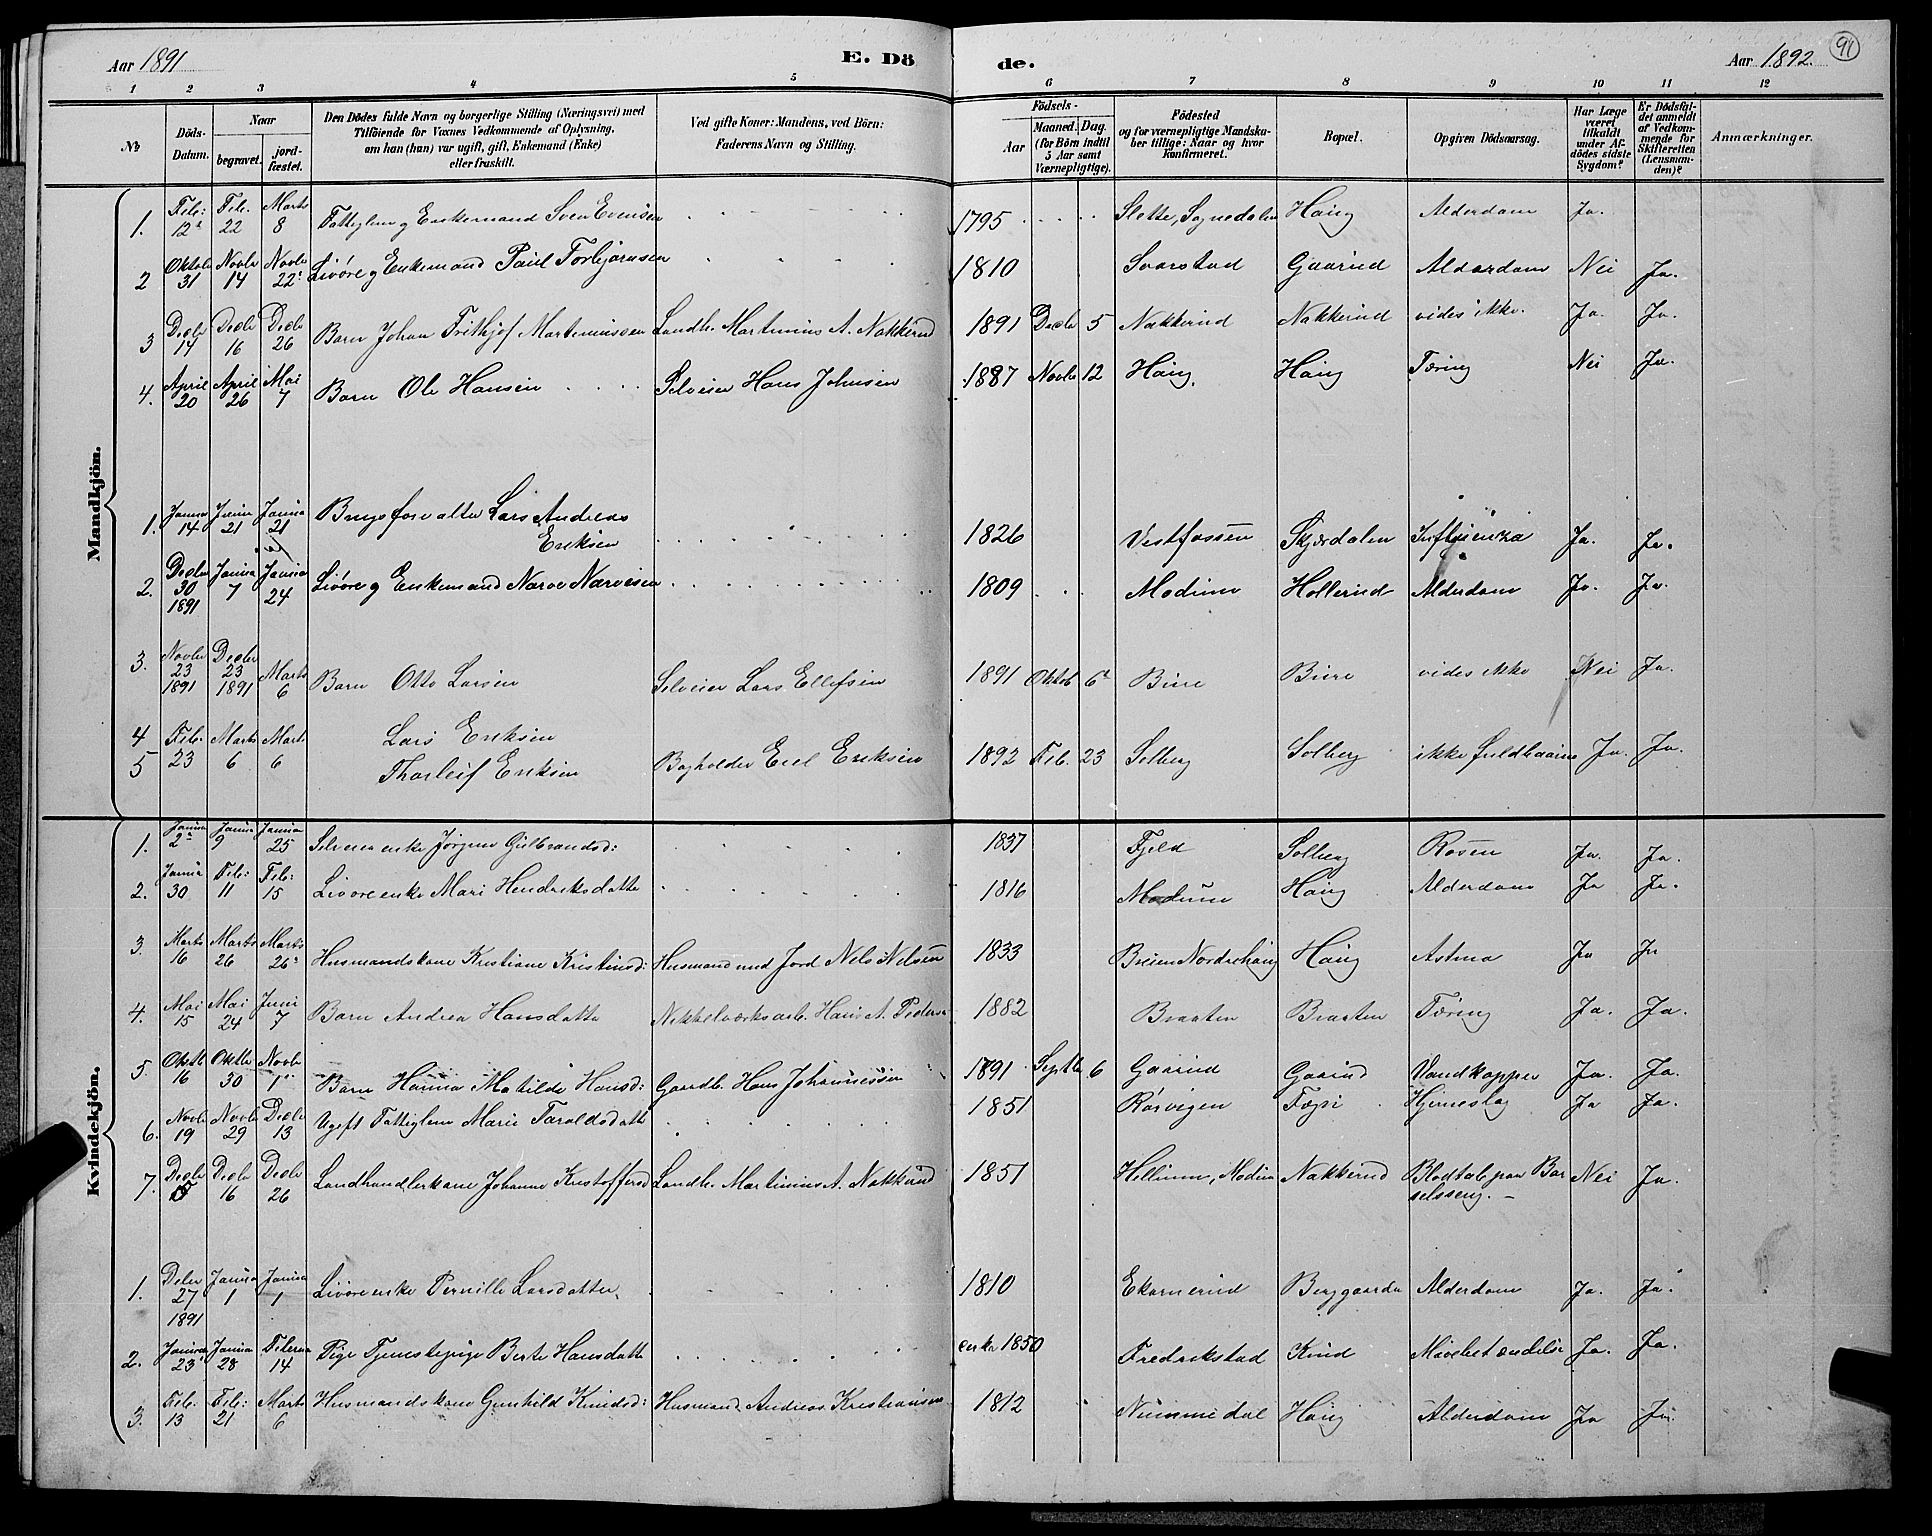 Aar 1891 E. Dö de. Aar 1892. 91
1 2 3 4 5 6 7 8 9 10 11 12
№ Döds-Datum. Naar begravet. jordfæstet. Den Dödes fulde Navn og borgerlige Stilling (Næringsvei) med Tilföiende for Voxnes Vedkommende af Oplysning, om han (hun) var ugift, gift, Enkemand (Enke) eller fraskilt. Ved gifte Koner: Mandens, ved Börn: Faderens Navn og Stilling. Födsels- Aar Maaned. Dag. (for Börn indtil 5 Aar samt Værnepligtige). Födested og for værnepligtige Mandskaber tillige: Naar og hvor Konfirmeret. Bopæl. Opgiven Dödsaarsag. Har Læge været tilkaldt under Afdödes sidste Sygdom? Er Dödsfaldet anmeldt af Vedkommende for Skifteretten (Lensmanden)? Anmærkninger.
Mandkjön.
1. Feb: 12 Feb. 22 Marts 8 Fattiglem g Enkemand Sven Evensen 1795 Slette, Sognedalen Haug Alderdom Ja.
2 Oktobr 31 Novbr 14 Novbr 22 Livöre g Enkemand Paul Torbjörnsen 1810 Svarstad Gaarud Alderdom Nei Ja.
3 Decbr 14 Decbr 16 Decbr 26 Barn Johan Frithjof Martinussen Landh. Martinius A. Nakkerud 1891 Decbr 5 Nakkerud Nakkerud vides ikke. Ja. Ja.
4. April 20 April 26 Mai 7 Barn Ole Hansen Selveier Hans Johnsen 1887 Novbr 12 Haug. Haug Tæring Nei Ja.
1. Janua 14 Janua 21 Janua 21 Brugsforvalter Lars Andreas
Eriksen 1826 Vestfossen Skjærdalen Influenza Ja. Ja.
2. Decbr 30 1891 Janua 7 Janua 24 Livöre g Enkemand Narve Narvesen 1809 Modum Hollerud Alderdom Ja. Ja.
3. Novbr 23 1891 Decbr 23 1891 Marts 6 Barn Otto Larsen Selveier Lars Ellefsen 1891 Oktob 6 Bure Bure vides ikke Nei Ja.
4 Feb. 23 Marts 6 Marts 6 Lars Eriksen
5 Thorleif Eriksen Bogholder Emil Eriksen 1892 Feb. 23 Solberg Solberg ikke fuldbaarne Ja. Ja.
Kvindekjön.
1. Janua 2 Janua 9 Janua 25 Selveierenke Jörgine Gulbrandsd: 1837 Fjeld Solberg Rosen Ja. Ja.
2. Janua 30 Feb: 11 Feb: 15 Livöreenke Mari Hendriksdatter 1816 Modum Haug Alderdom Ja Ja.
3. Marts 16 Marts 26 Marts 26 Husmandskone Kristiane Kristinsd: Husmand med Jord Nels Nelsen 1833 Breien Norderhaug Haug Astma Ja Ja
4. Mai 15 Mai 24 Juni 7 Barn Andrea Hansdatter Nikkelværksarb. Hans A. Peders 1882 Braaten Braaten Tæring Ja. Ja.
5. Oktb 16 Oktb 30 Novbr 1 Barn Hanna Matilde Hansd: Gaardb. Hans Johannessen 1891 Septbr 6 Gaarud Gaarud Vandkopper Ja. Ja.
6. Novbr 19 Novbr 29 Decbr 13 Ugift Fattiglem Marie Taraldsdatt 1851 Rörvigen Hjerneslag Ja Ja.
7. Decbr Decbr 16 Decbr 26 Landhandlerkone Johanne Kristoffersd Landh. Martinius A. Nakkerud 1851 Hellium, Modum Nakkerud Blodtab paa Bar
selsseng. Nei Ja.
1. Decbr 27 1891 Janua 1 Janua 1 Livöreenke Pernille Larsdatter 1810 Ekornerud Berggaarden Alderdom Ja. Ja.
2. Janua 23 Janua 28 Februa 14 Pige Tjenestepige Berte Hansdatter cirka 1850 Fredrikstad Knud Mavebetændelse Ja. Ja.
3. Feb. 13 Feb: 21 Marts 6 Husmandskone Gunhild Knudsd: Husmand Andreas Kristiansen 1812 Nummedal Haug Alderdom Ja Ja.